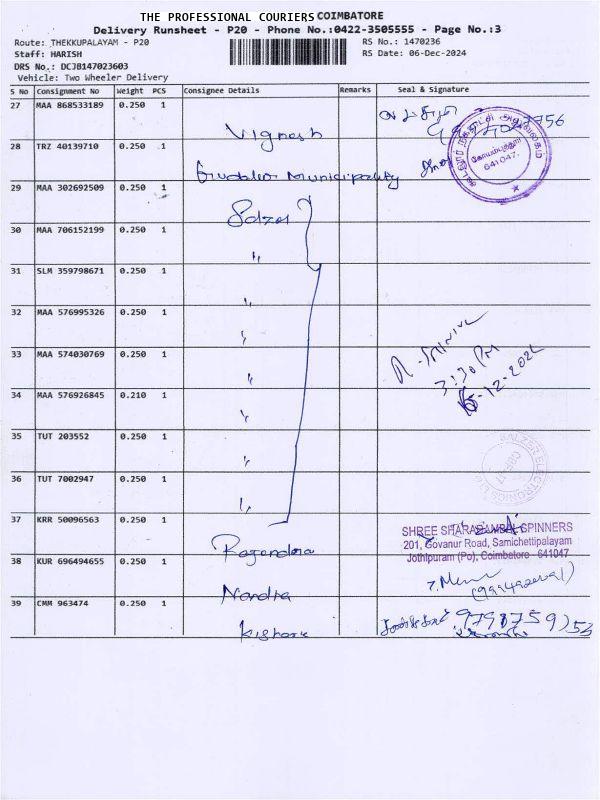 THE PROFESSIONAL COURIERS COIMBATORE
Delivery Runsheet - P20 - Phone No.:0422-3505555 - Page No.:3
Route: THEKKUPALAYAM - P20
RS No.: 1470236
Staff: HARISH
RS Date: 06-Dec-2024
DRS No.: DCJB147023603
Vehicle: Two Wheeler Delivery
S No Consignment No Weight PCS Consignee Details Remarks Seal & Signature
27 MAA 868533189 0.250 1
Vignesh
28 TRZ 40139710 0.250 1
Gudalur Municipality
641047.
29 MAA 302692509 0.250 1
Salzer
30 MAA 706152199 0.250 1
"
31 SLM 359798671 0.250 1
"
32 MAA 576995326 0.250 1
"
33 MAA 574030769 0.250 1
"
3:30 PM
34 MAA 576926845 0.210 1
"
35 TUT 203552 0.250 1
"
SALZER ELECTRONICS LTD
36 TUT 7002947 0.250 1
"
37 KRR 50096563 0.250 1
Rajendra
SHREE SHARADAMBAL SPINNERS
201, Govanur Road, Samichettipalayam
Jothipuram (Po), Coimbatore - 641047
38 KUR 696494655 0.250 1
Nandha
39 CMM 963474 0.250 1
Kishore